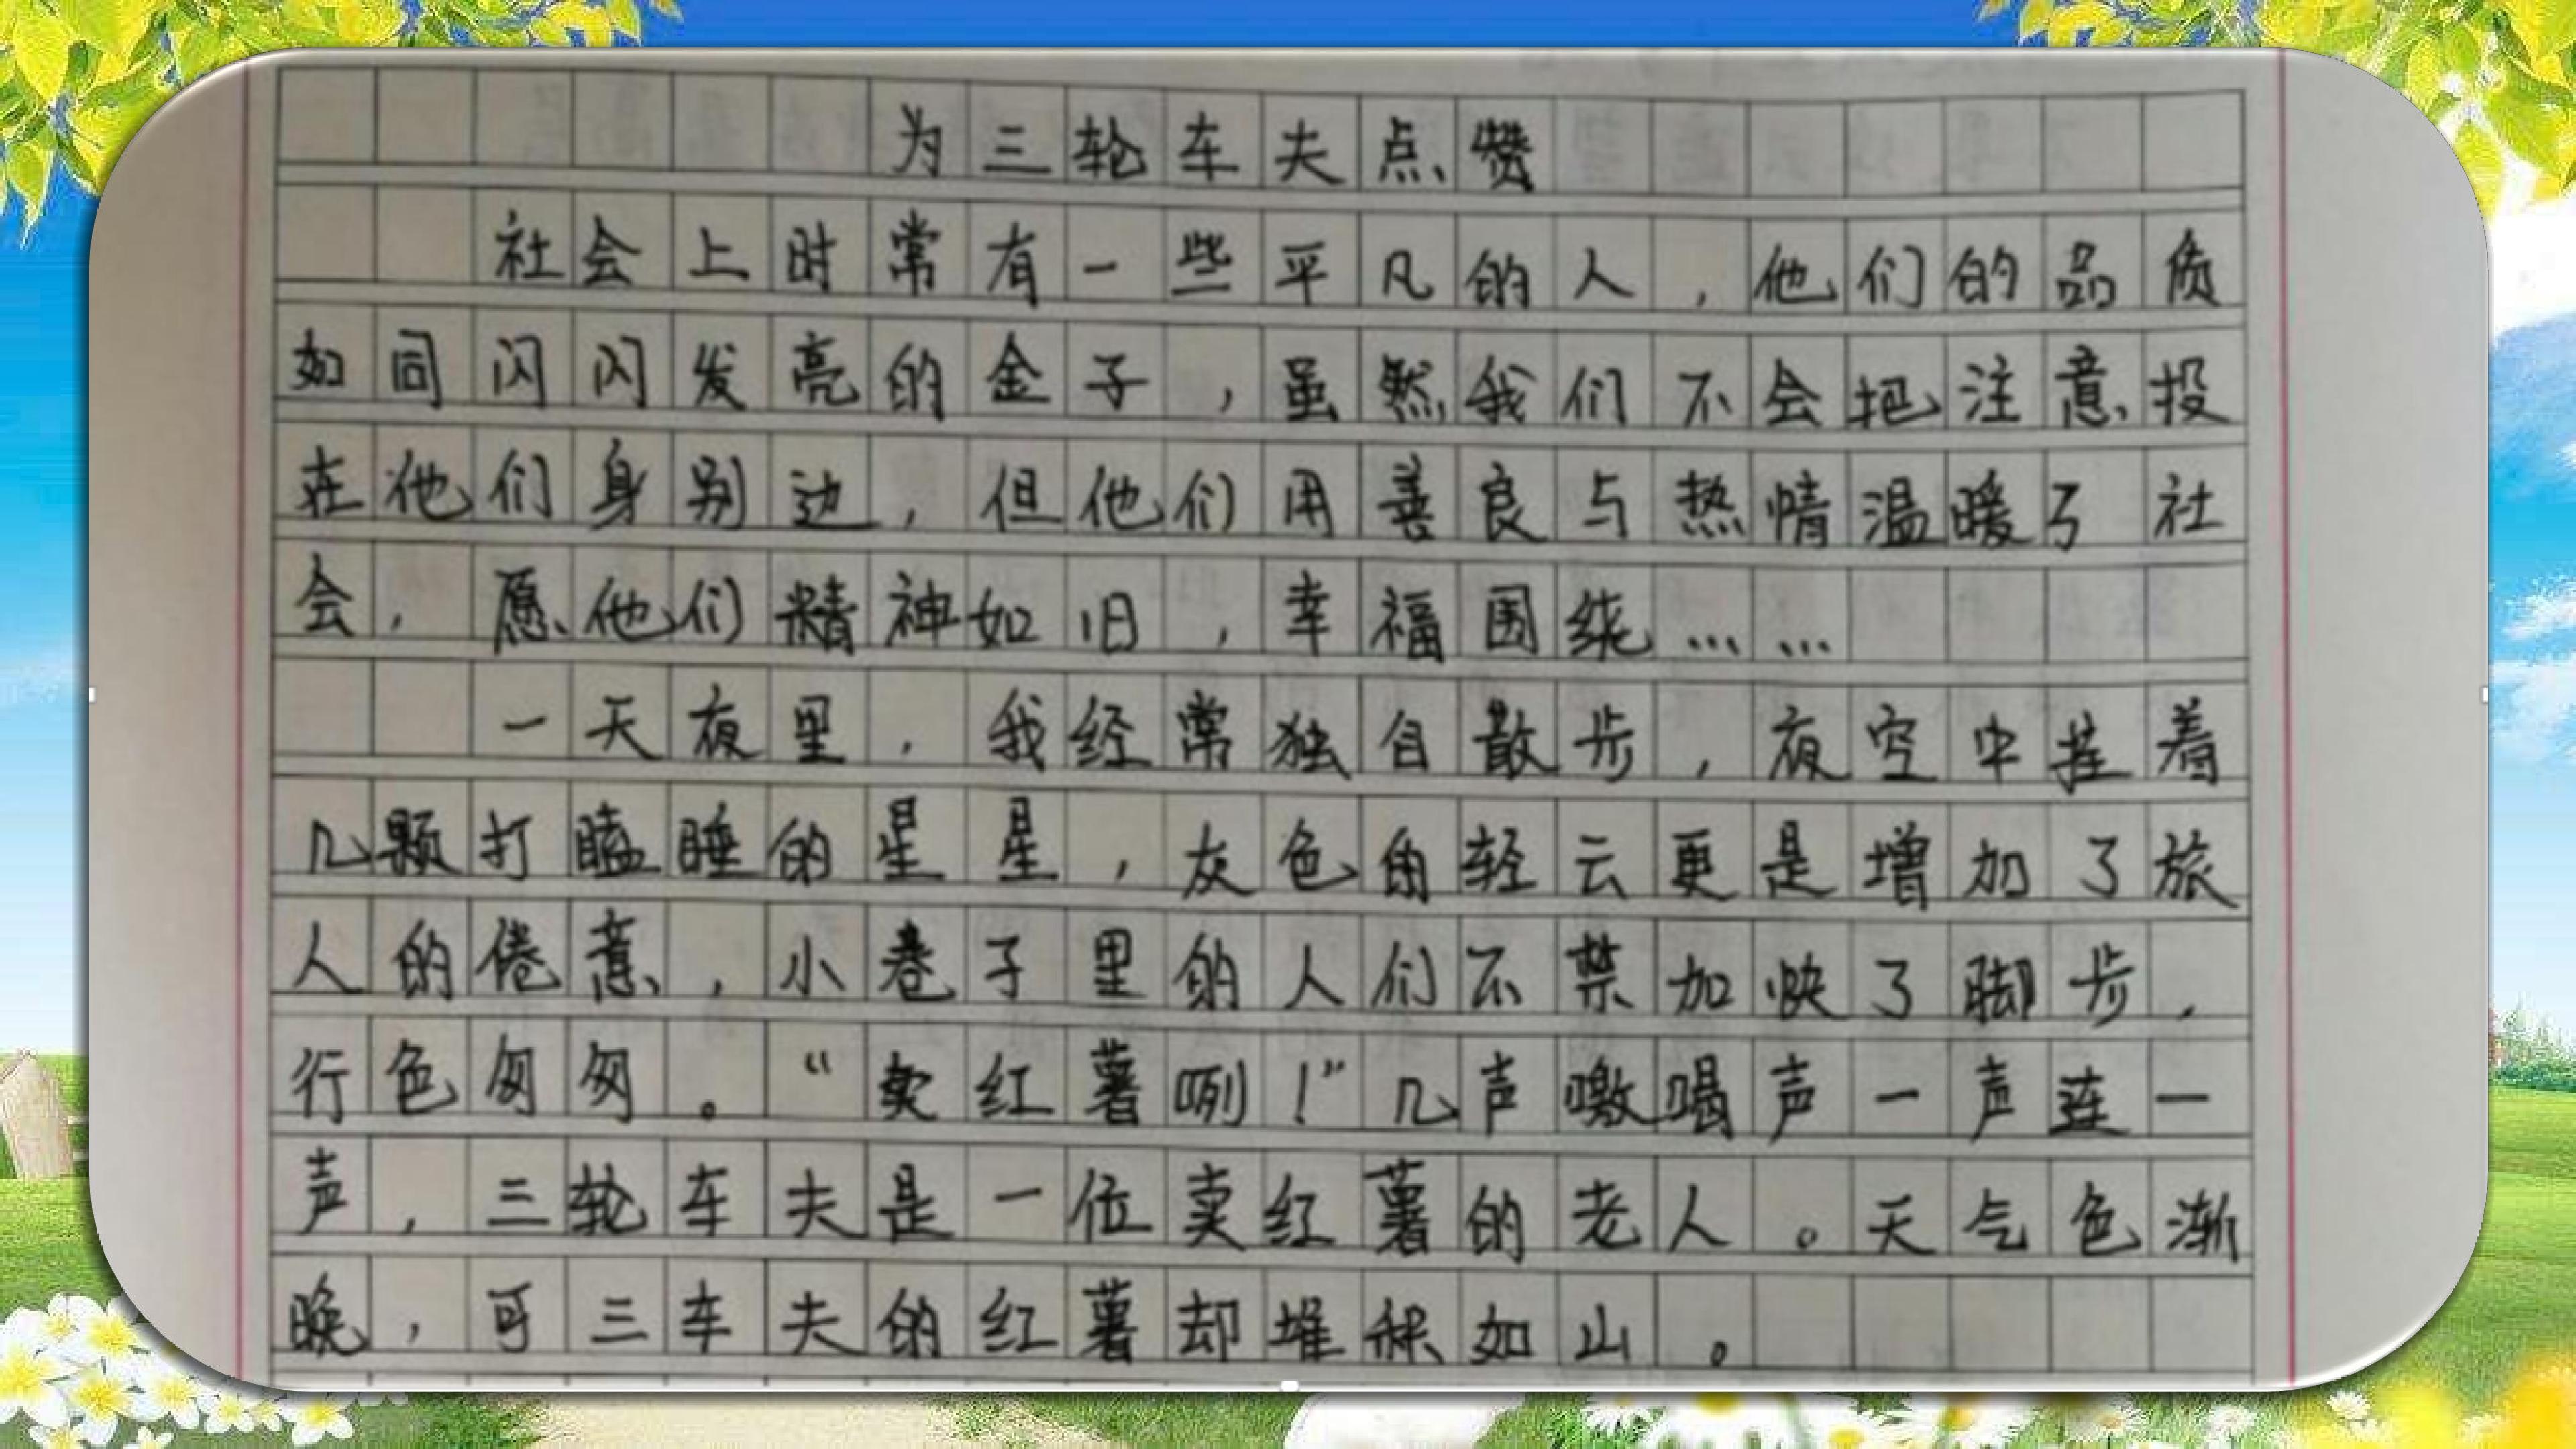 为三轮车夫点赞
社会上时常有一些平凡的人，他们的品质
如同闪闪发亮的金子，虽然我们不会把注意投
在他们身别边，但他们用善良与热情温暖了社
会，愿他们精神如旧，幸福围绕……
一天夜里，我经常独自散步，夜空中挂着
几颗打瞌睡的星星，灰色的轻云更是增加了旅
人的倦意，小巷子里的人们不禁加快了脚步，
行色匆匆。“卖红薯咧！”几声噭喝声一声连一
声，三轮车夫是一位卖红薯的老人。天气色渐
晚，可三车夫的红薯却堆积如山。